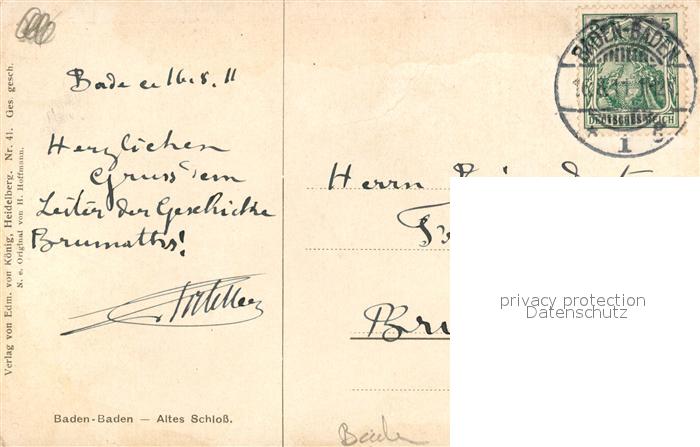 Verlag von Edm. von König, Heidelberg. Nr. 41. Ges. gesch.
N. e. Original von H. Hoffmann.
Baden 16.8.11
Herzlichen
Gruss dem
Leiter der Geschicke
Brumaths!
Baden-Baden — Altes Schloß.
5
BADEN-BADEN
16.8.11
* 1 g
DEUTSCHES REICH
Herrn
Bru
privacy protection
Datenschutz
Baden